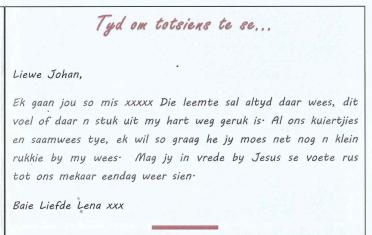 Tyd om totsiens te se...
Liewe Johan,
Ek gaan jou so mis xxxxx Die leemte sal altyd daar wees, dit
voel of daar n stuk uit my hart weg geruk is. Al ons kuiertjies
en saamwees tye, ek wil so graag he jy moes net nog n klein
rukkie by my wees. Mag jy in vrede by Jesus se voete rus
tot ons mekaar eendag weer sien.
Baie Liefde Lena xxx